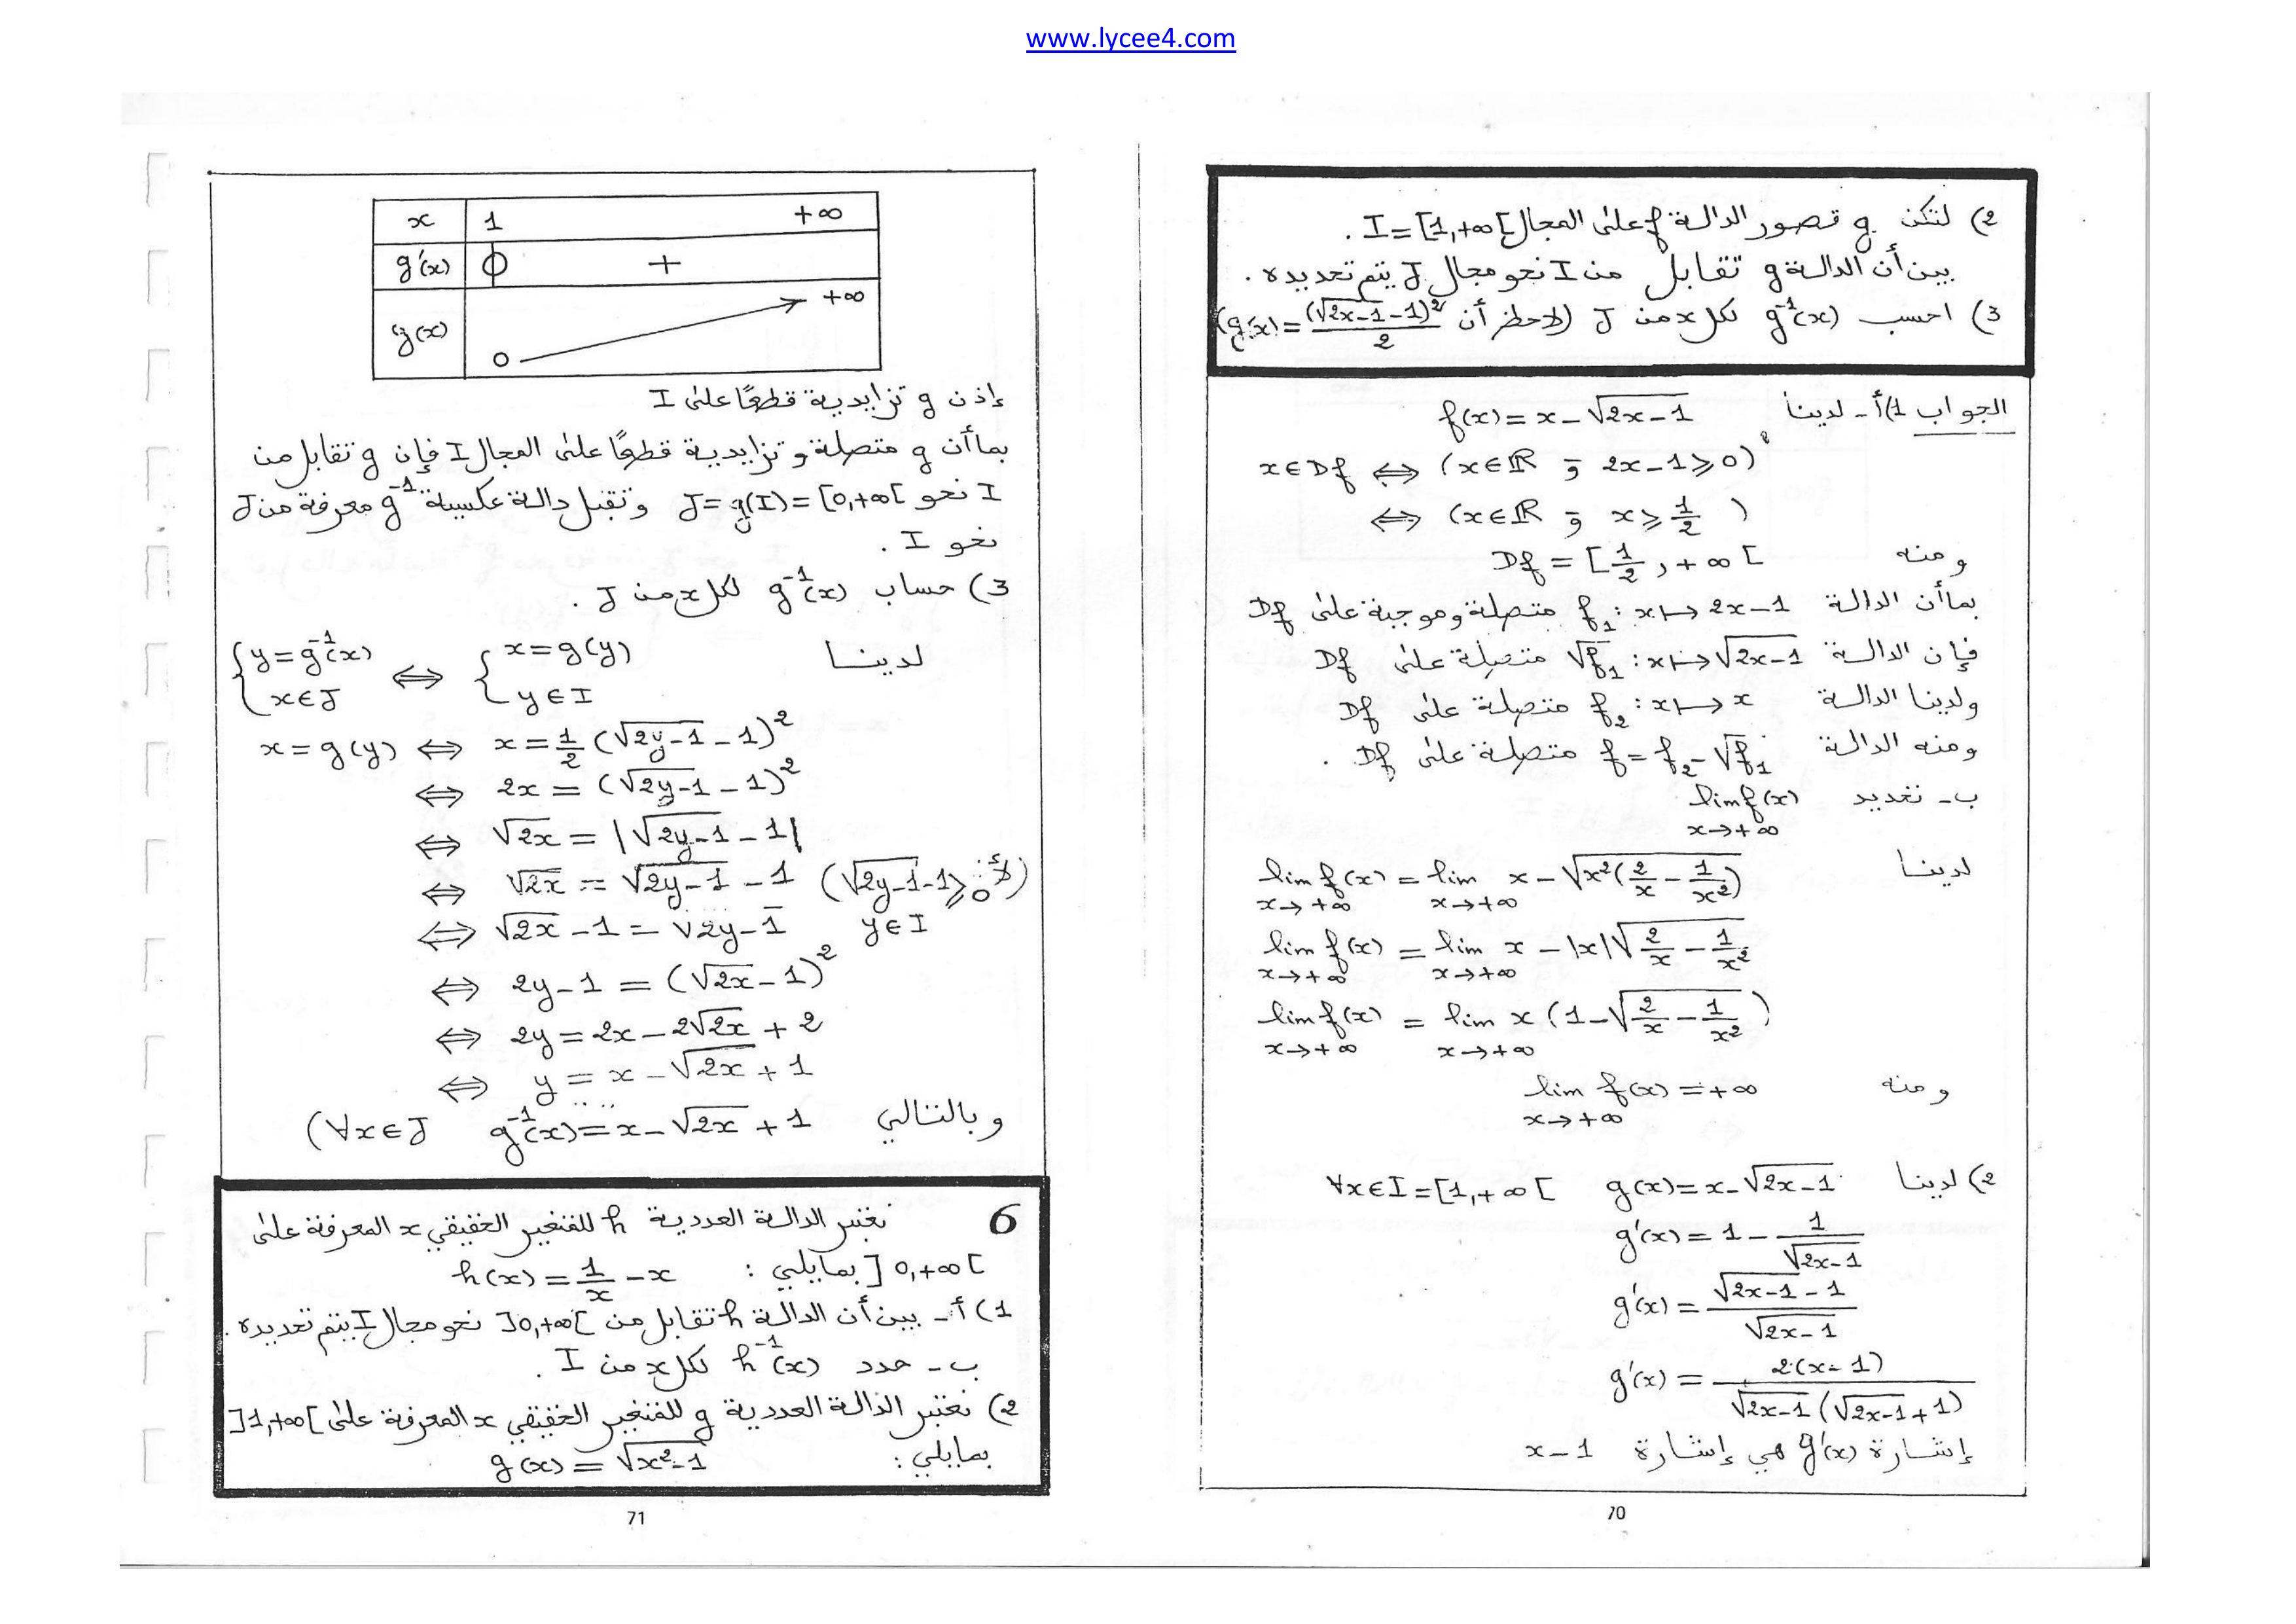 www.lycee4.com
2) لتكن g قصور الدالة f على المجال I=[1,+∞[ .
بين أن الدالة g تقابل من I نحو مجال J يتم تحديده .
3) احسب g⁻¹(x) لكل x من J (لاحظ أن g(x)=(√(2x-1)-1)²/2)
الجواب 1)أ- لدينا f(x)=x-√(2x-1)
x∈Df ⟺ (x∈ℝ و 2x-1⩾0)
⟺ (x∈ℝ و x⩾1/2)
ومنه Df=[1/2,+∞[
بما أن الدالة f₁:x↦2x-1 متصلة وموجبة على Df
فإن الدالة √f₁:x↦√(2x-1) متصلة على Df
ولدينا الدالة f₂:x↦x متصلة على Df
ومنه الدالة f=f₂-√f₁ متصلة على Df .
ب- تحديد lim f(x) x→+∞
لدينا lim f(x) = lim x-√(x²(2/x-1/x²)) x→+∞ x→+∞
lim f(x) = lim x-|x|√(2/x-1/x²) x→+∞ x→+∞
lim f(x) = lim x(1-√(2/x-1/x²)) x→+∞ x→+∞
ومنه lim f(x)=+∞ x→+∞
2) لدينا g(x)=x-√(2x-1) ∀x∈I=[1,+∞[
g'(x)=1-1/√(2x-1)
g'(x)=(√(2x-1)-1)/√(2x-1)
g'(x)=2(x-1)/(√(2x-1)(√(2x-1)+1))
إشارة g'(x) هي إشارة x-1
70
x 1 +∞
g'(x) 0 +
g(x) 0 +∞
إذن g تزايدية قطعًا على I
بما أن g متصلة و تزايدية قطعًا على المجال I فإن g تقابل من
I نحو J=g(I)=[0,+∞[ وتقبل دالة عكسية g⁻¹ معرفة من J
نحو I .
3) حساب g⁻¹(x) لكل x من J .
لدينا {y=g⁻¹(x) x∈J ⟺ {x=g(y) y∈I
x=g(y) ⟺ x=1/2(√(2y-1)-1)²
⟺ 2x=(√(2y-1)-1)²
⟺ √2x=|√(2y-1)-1|
⟺ √2x=√(2y-1)-1 (لأن: √(2y-1)-1⩾0)
⟺ √2x-1=√2y-1 y∈I
⟺ 2y-1=(√2x-1)²
⟺ 2y=2x-2√2x+2
⟺ y=x-√2x+1
وبالتالي g⁻¹(x)=x-√2x+1 (∀x∈J
6 نعتبر الدالة العددية h للمتغير الحقيقي x المعرفة على
]0,+∞[ بمايلي : h(x)=1/x-x
1) أ- بين أن الدالة h تقابل من ]0,+∞[ نحو مجال I يتم تحديده .
ب- حدد h⁻¹(x) لكل x من I .
2) نعتبر الدالة العددية g للمتغير الحقيقي x المعرفة على ]1,+∞[
بمايلي : g(x)=√(x²-1)
71